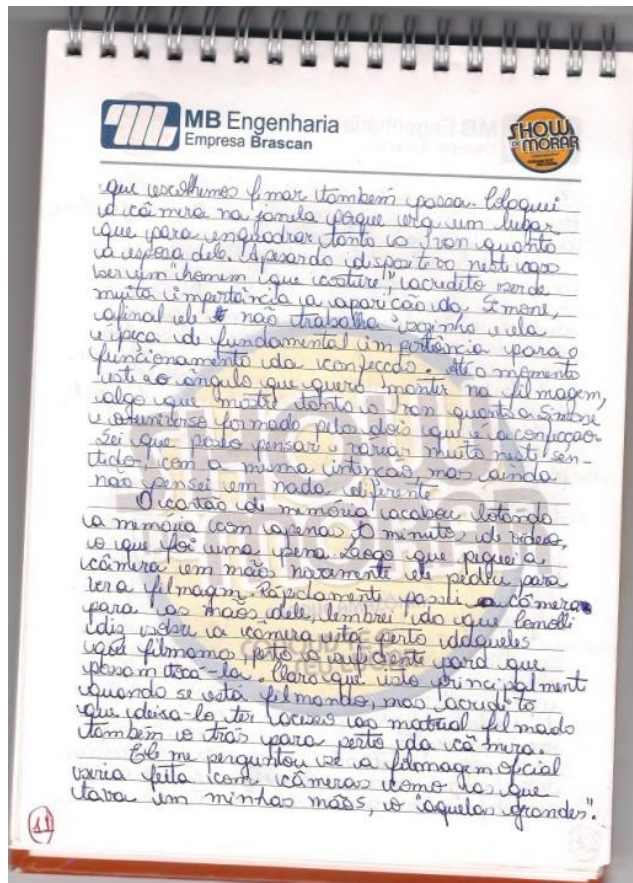 MB Engenharia
Empresa Brascan
SHOW
DE
MORAR
que escolhemos fimar também passa. Coloquei
a câmera na janela porque era um lugar
que para enquadrar tanto o Iran quanto
a esposa dele. Apesar do dispositivo neste caso
ser um "homem que costure", acredito ser de
muita importância a aparição da Simone,
afinal ele não trabalha sozinho e ela
é peça de fundamental importância para o
funcionamento da confecção. Até o momento
este é o ângulo que quero manter na filmagem,
algo que mostre tanto o Iran quanto a Simone
e o universo formado pelos dois que é a confecção.
Sei que posso pensar e variar muito neste sen-
tido, com a mesma intenção mas ainda
não pensei em nada diferente
O cartão de memória acabou lotando
a memória com apenas minutos de video,
o que foi uma pena. Logo que peguei a
câmera em mãos novamente ele pediu para
ver a filmagem. Rapidamente passei a câmera
para as mãos dele, lembrei do que Comolli
diz sobre a câmera está perto daqueles
que filmamos, perto o suficiente para que
possam tocá-la. Claro que isto principalment
quando se está filmando, mas acredito
que deixa-lo ter acesso ao material filmado
também o trás para perto da câmera.
Ele me perguntou se a filmagem oficial
seria feita com câmeras como as que
tava em minhas mãos, o "aquelas grandes".
11